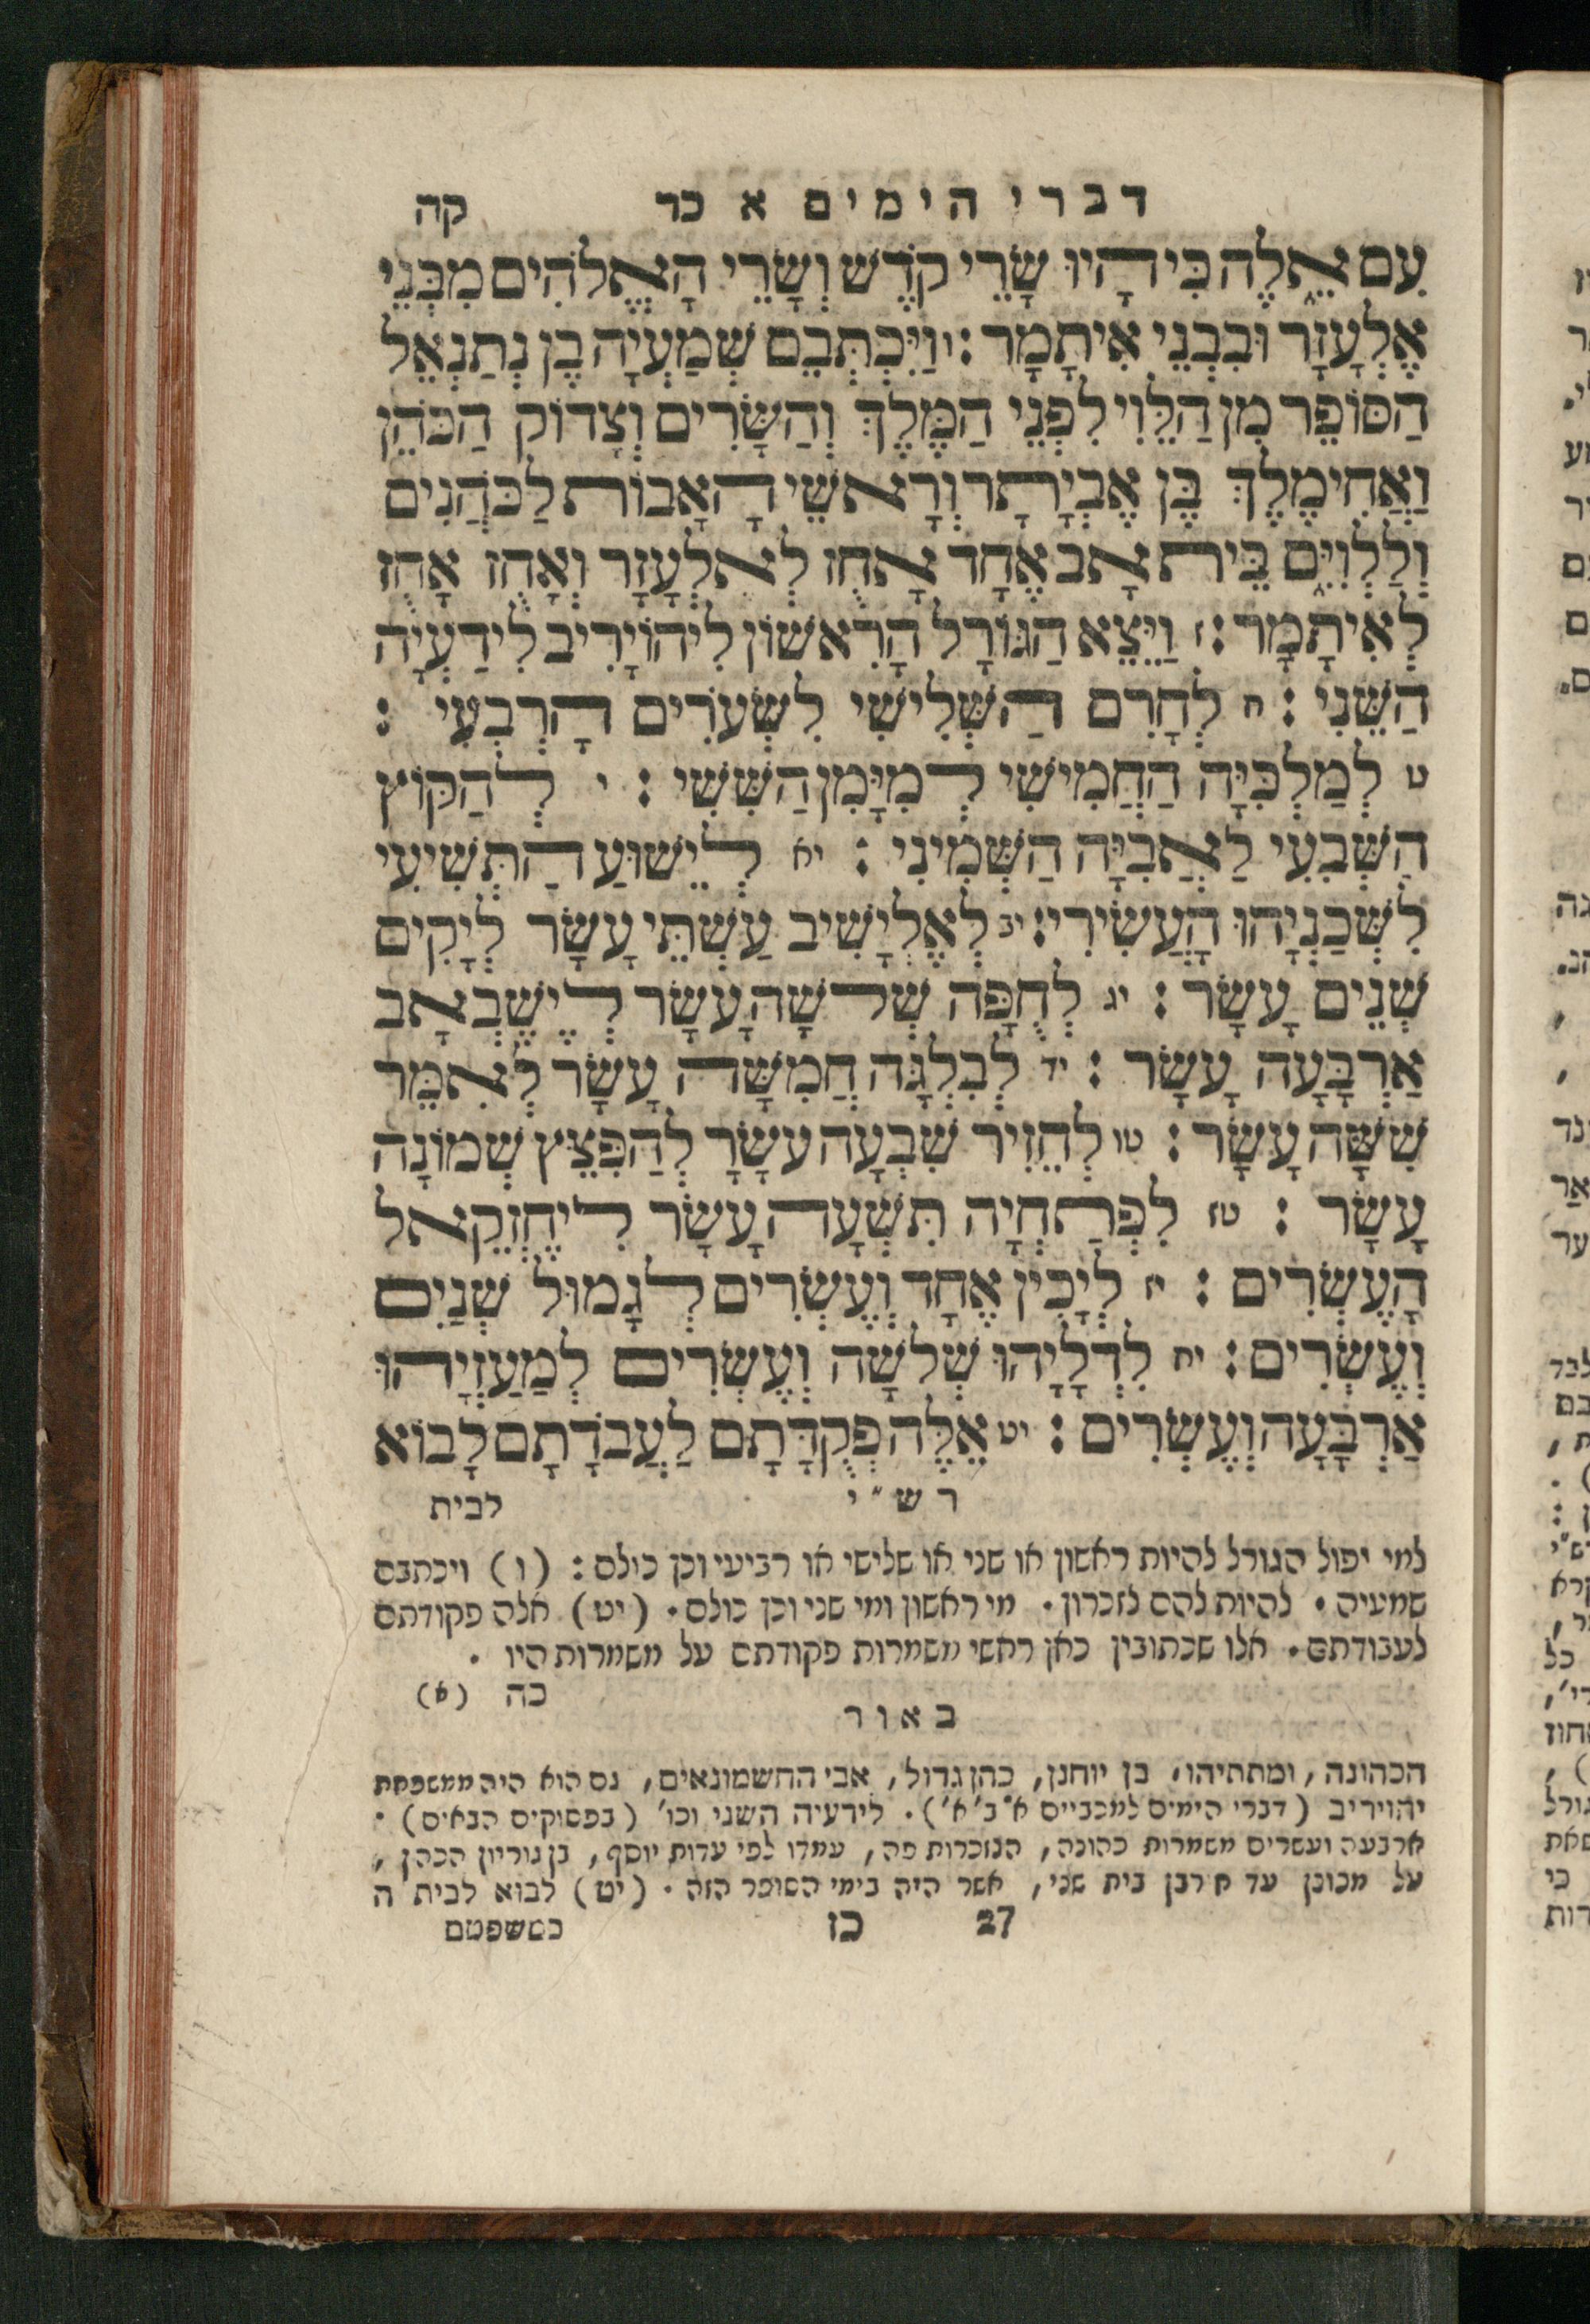 דברי הימים א כד קה
עִם אֵלֶּה כִּי הָיוּ שָׂרֵי קֹדֶשׁ וְשָׂרֵי הָאֱלֹהִים מִבְּנֵי
אֶלְעָזָר וּבִבְנֵי אִיתָמָר : ו וַיִּכְתְּבֵם שְׁמַעְיָה בֶן נְתַנְאֵל
הַסּוֹפֵר מִן הַלֵּוִי לִפְנֵי הַמֶּלֶךְ וְהַשָּׂרִים וְצָדוֹק הַכֹּהֵן
וַאֲחִימֶלֶךְ בֶּן אֶבְיָתָר וְרָאשֵׁי הָאָבוֹת לַכֹּהֲנִים
וְלַלְוִיִּם בֵּית אָב אֶחָד אָחֻז לְאֶלְעָזָר וְאָחֻז אָחֻז
לְאִיתָמָר : ז וַיֵּצֵא הַגּוֹרָל הָרִאשׁוֹן לִיהוֹיָרִיב לִידַעְיָה
הַשֵּׁנִי : ח לְחָרִם הַשְּׁלִישִׁי לִשְׂעֹרִים הָרְבִעִי :
ט לְמַלְכִּיָּה הַחֲמִישִׁי לְמִיָּמִן הַשִּׁשִּׁי : י לְהַקּוֹץ
הַשְּׁבִעִי לַאֲבִיָּה הַשְּׁמִינִי : יא לְיֵשׁוּעַ הַתְּשִׁיעִי
לִשְׁכַנְיָהוּ הָעֲשִׂירִי : יב לְאֶלְיָשִׁיב עַשְׁתֵּי עָשָׂר לְיָקִים
שְׁנֵים עָשָׂר : יג לְחֻפָּה שְׁלשָׁה עָשָׂר לְיֶשֶׁבְאָב
אַרְבָּעָה עָשָׂר : יד לְבִלְגָּה חֲמִשָּׁה עָשָׂר לְאִמֵּר
שִׁשָּׁה עָשָׂר : טו לְחֵזִיר שִׁבְעָה עָשָׂר לְהַפִּצֵּץ שְׁמוֹנָה
עָשָׂר : טז לִפְתַחְיָה תִּשְׁעָה עָשָׂר לִיחֶזְקֵאל
הָעֶשְׂרִים : יז לְיָכִין אֶחָד וְעֶשְׂרִים לְגָמוּל שְׁנַיִם
וְעֶשְׂרִים : יח לִדְלָיָהוּ שְׁלשָׁה וְעֶשְׂרִים לְמַעַזְיָהוּ
אַרְבָּעָה וְעֶשְׂרִים : יט אֵלֶּה פְקֻדָּתָם לַעֲבֹדָתָם לָבוֹא
רש״י לבית
למי יפול הגורל להיות ראשון או שני או שלישי או רביעי וכן כולם : (ו) ויכתבם
שמעיה . להיות להם לזכרון . מי ראשון ומי שני וכן כולם . (יט) אלה פקודתם
לעבודתם . אלו שכתובין כאן ראשי משמרות פקודתם על משמרות היו .
כה (א)
באור
הכהונה, ומתתיהו, בן יוחנן, כהן גדול, אבי החשמונאים, גם הוא היה ממשפחת
יהויריב (דברי הימים למכביים א׳ ב׳ א׳). לידעיה השני וכו׳ (בפסוקים הבאים) .
ארבעה ועשרים משמרות כהונה, הנזכרות פה, עמדו לפי עדות יוסף, בן גוריון הכהן,
על מכונן עד חרבן בית שני, אשר היה בימי הסופר הזה . (יט) לבוא לבית ה
27 כז כמשפטם